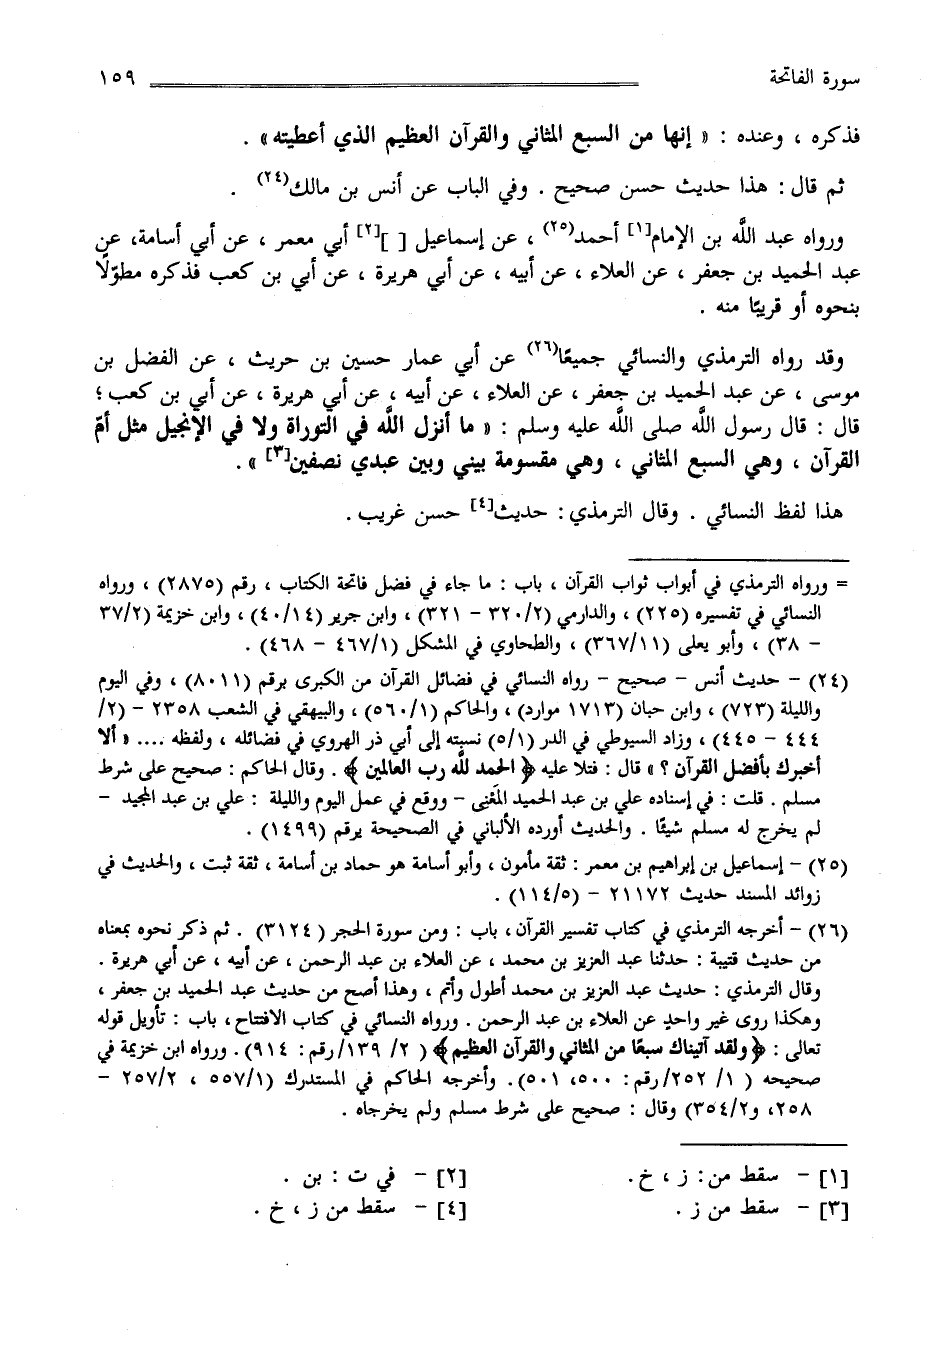 سورة الفاتحة ١٥٩
فذكره ، وعنده : « إنها من السبع المثاني والقرآن العظيم الذي أعطيته » .
ثم قال : هذا حديث حسن صحيح . وفي الباب عن أنس بن مالك(٢٤) .
ورواه عبد الله بن الإمام[١] أحمد(٢٥) ، عن إسماعيل [ ][٢] أبي معمر ، عن أبي أسامة، عن
عبد الحميد بن جعفر ، عن العلاء ، عن أبيه ، عن أبي هريرة ، عن أبي بن كعب فذكره مطوّلًا
بنحوه أو قريبًا منه .
وقد رواه الترمذي والنسائي جميعًا(٢٦) عن أبي عمار حسين بن حريث ، عن الفضل بن
موسى ، عن عبد الحميد بن جعفر ، عن العلاء ، عن أبيه ، عن أبي هريرة ، عن أبي بن كعب ؛
قال : قال رسول الله صلى الله عليه وسلم : « ما أنزل الله في التوراة ولا في الإنجيل مثل أمّ
القرآن ، وهي السبع المثاني ، وهي مقسومة بيني وبين عبدي نصفين[٣] » .
هذا لفظ النسائي . وقال الترمذي : حديث[٤] حسن غريب .
= ورواه الترمذي في أبواب ثواب القرآن ، باب : ما جاء في فضل فاتحة الكتاب ، رقم (٢٨٧٥) ، ورواه
النسائي في تفسيره (٢٢٥) ، والدارمي (٣٢٠/٢ – ٣٢١) ، وابن جرير (٤٠/١٤) ، وابن خزيمة (٣٧/٢
– ٣٨) ، وأبو يعلى (٣٦٧/١١) ، والطحاوي في المشكل (٤٦٧/١ – ٤٦٨) .
(٢٤) – حديث أنس – صحيح – رواه النسائي في فضائل القرآن من الكبرى برقم (٨٠١١) ، وفي اليوم
والليلة (٧٢٣) ، وابن حبان (١٧١٣ موارد) ، والحاكم (٥٦٠/١) ، والبيهقي في الشعب ٢٣٥٨ – (٢/
٤٤٤ – ٤٤٥) ، وزاد السيوطي في الدر (٥/١) نسبته إلى أبي ذر الهروي في فضائله ، ولفظه .... « ألا
أخبرك بأفضل القرآن ؟ » قال : فتلا عليه ﴿ الحمد لله رب العالمين ﴾ . وقال الحاكم : صحيح على شرط
مسلم . قلت : في إسناده علي بن عبد الحميد المَعْنِى – ووقع في عمل اليوم والليلة : علي بن عبد المجيد –
لم يخرج له مسلم شيئًا . والحديث أورده الألباني في الصحيحة برقم (١٤٩٩) .
(٢٥) – إسماعيل بن إبراهيم بن معمر : ثقة مأمون ، وأبو أسامة هو حماد بن أسامة ، ثقة ثبت ، والحديث في
زوائد المسند حديث ٢١١٧٢ – (١١٤/٥) .
(٢٦) – أخرجه الترمذي في كتاب تفسير القرآن ، باب : ومن سورة الحجر (٣١٢٤) . ثم ذكر نحوه بمعناه
من حديث قتيبة : حدثنا عبد العزيز بن محمد ، عن العلاء بن عبد الرحمن ، عن أبيه ، عن أبي هريرة .
وقال الترمذي : حديث عبد العزيز بن محمد أطول وأتم ، وهذا أصح من حديث عبد الحميد بن جعفر ،
وهكذا روى غير واحدٍ عن العلاء بن عبد الرحمن . ورواه النسائي في كتاب الافتتاح ، باب : تأويل قوله
تعالى : ﴿ولقد آتيناك سبعًا من المثاني والقرآن العظيم﴾ ( ٢/ ١٣٩/ رقم : ٩١٤) . ورواه ابن خزيمة في
صحيحه ( ١/ ٢٥٢/ رقم : ٥٠٠، ٥٠١). وأخرجه الحاكم في المستدرك (٥٥٧/١ ، ٢٥٧/٢ –
٢٥٨، و٣٥٤/٢) وقال : صحيح على شرط مسلم ولم يخرجاه .
[١] – سقط من : ز ، خ . [٢] – في ت : بن .
[٣] – سقط من ز . [٤] – سقط من ز ، خ .